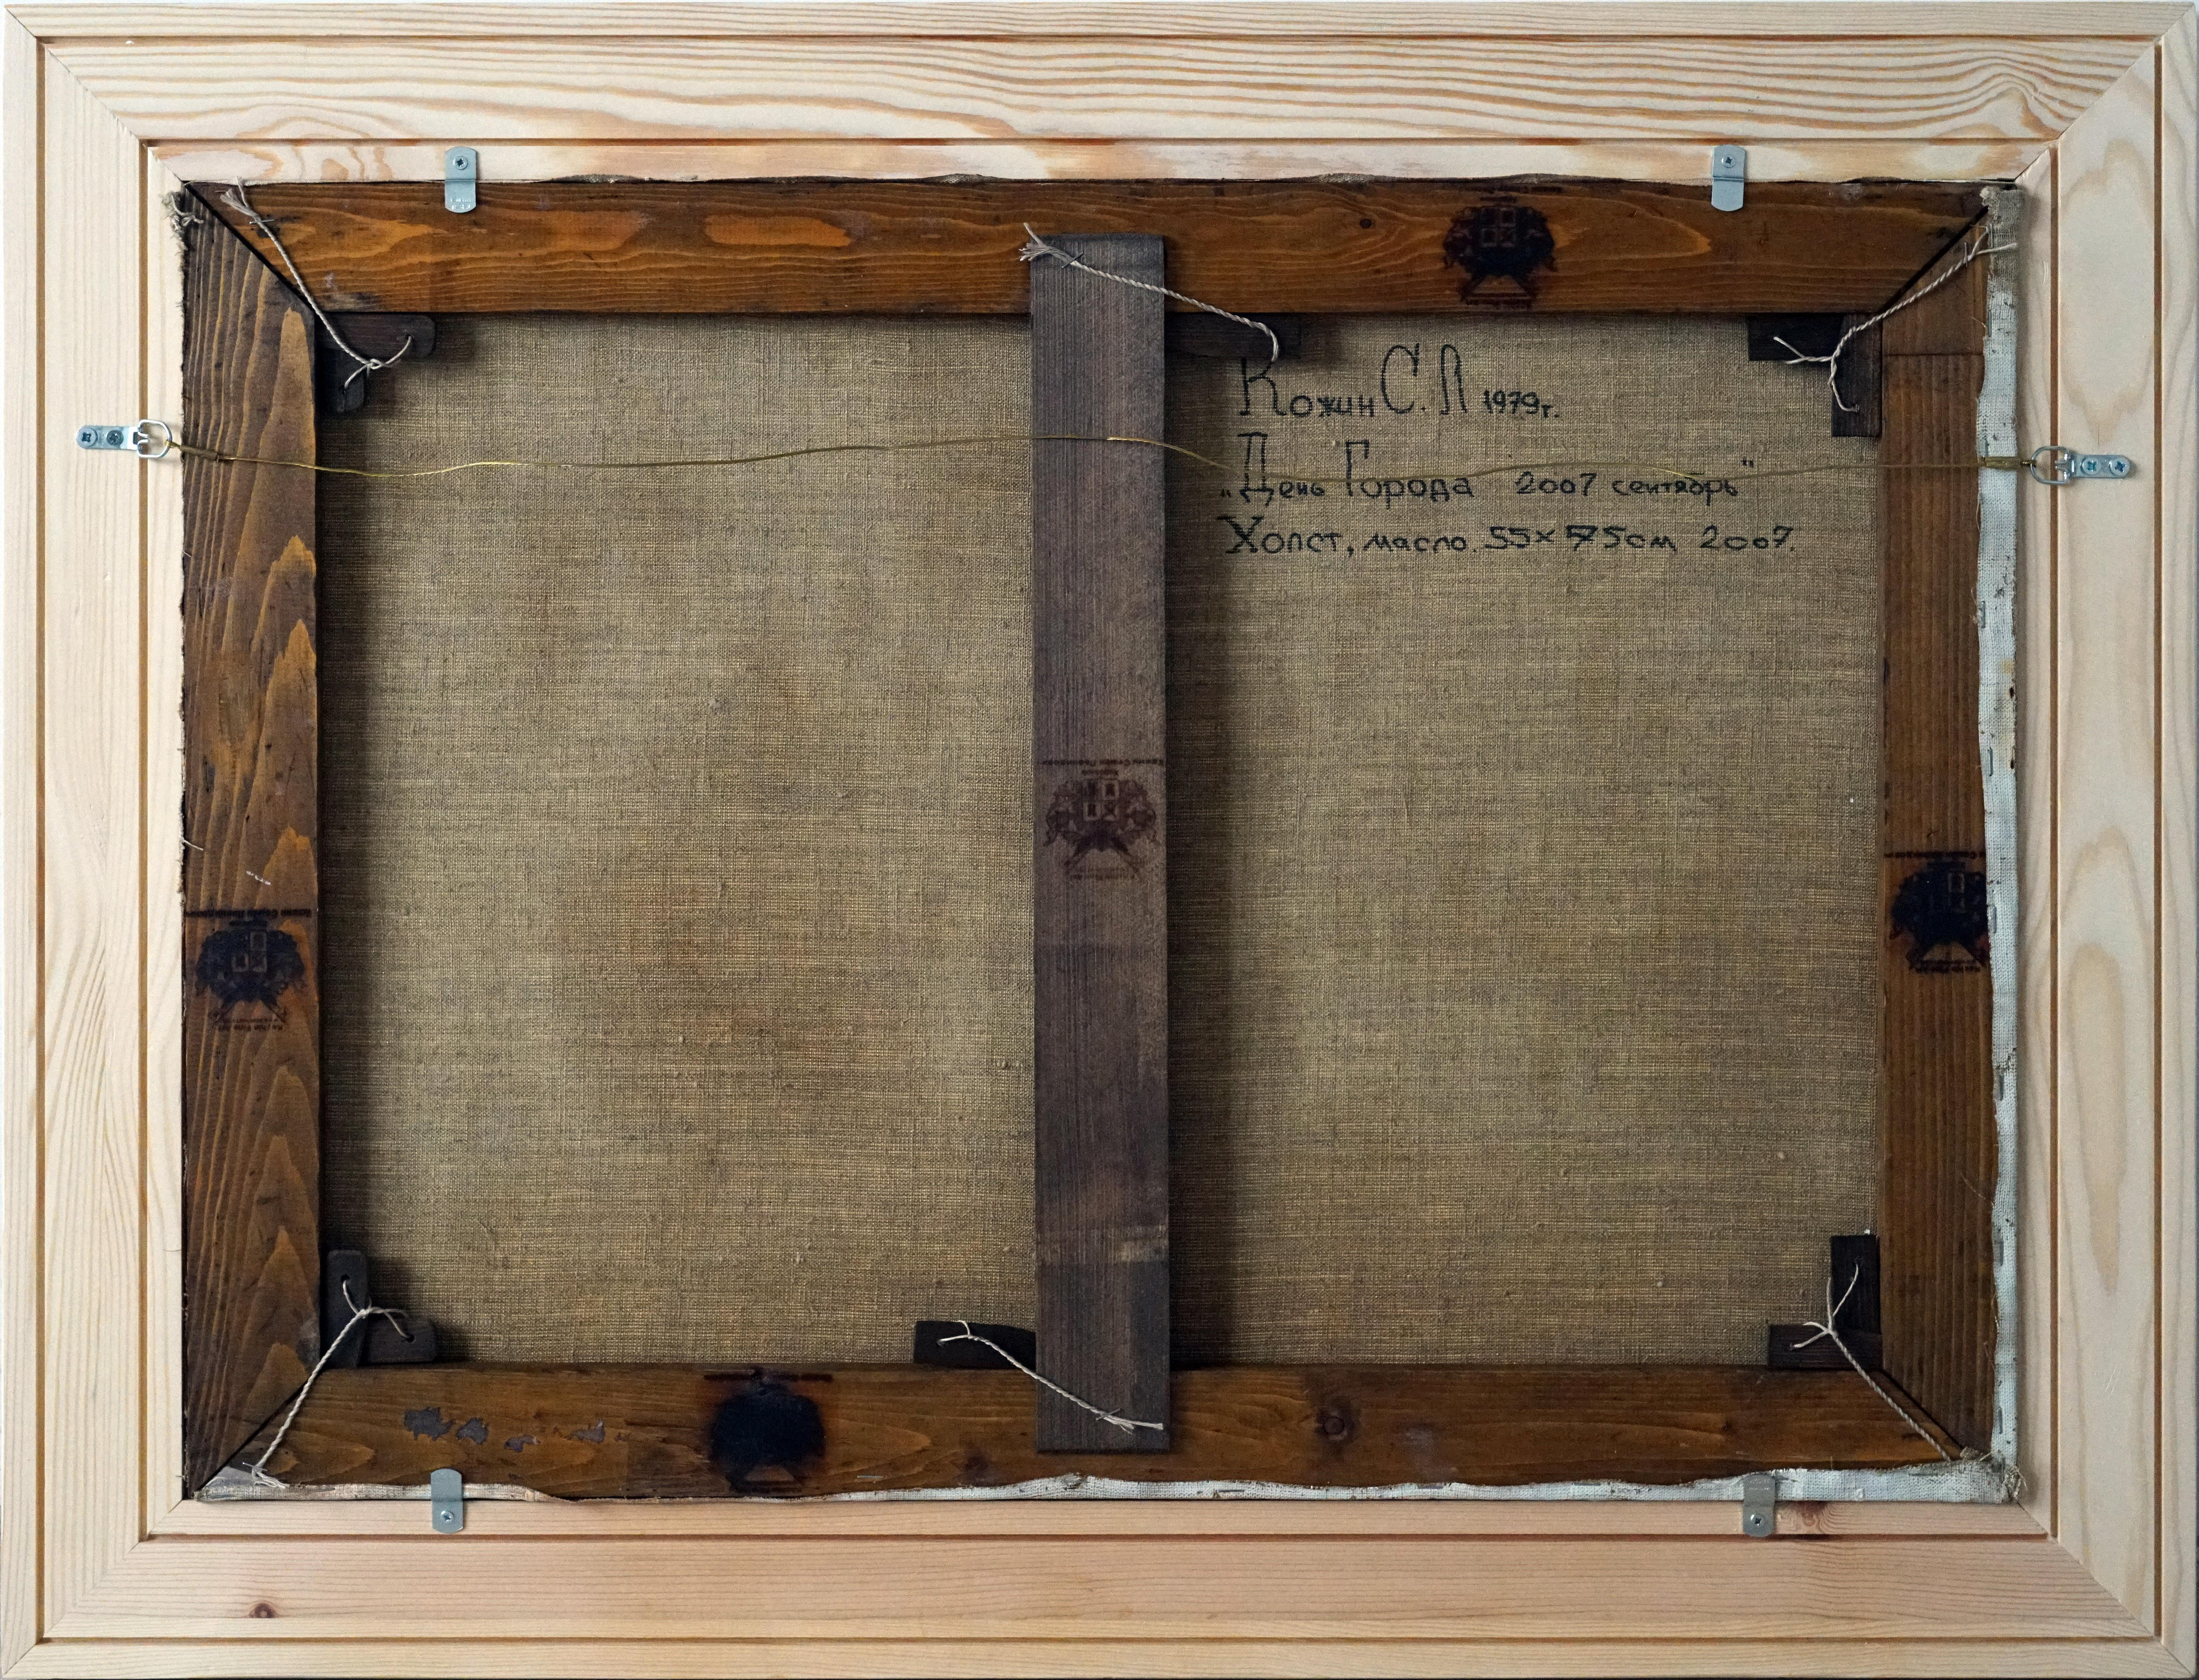 Кожин С.Л 1979г.
„День Города 2007 сентябрь"
Холст, масло. 55×75см 2007.